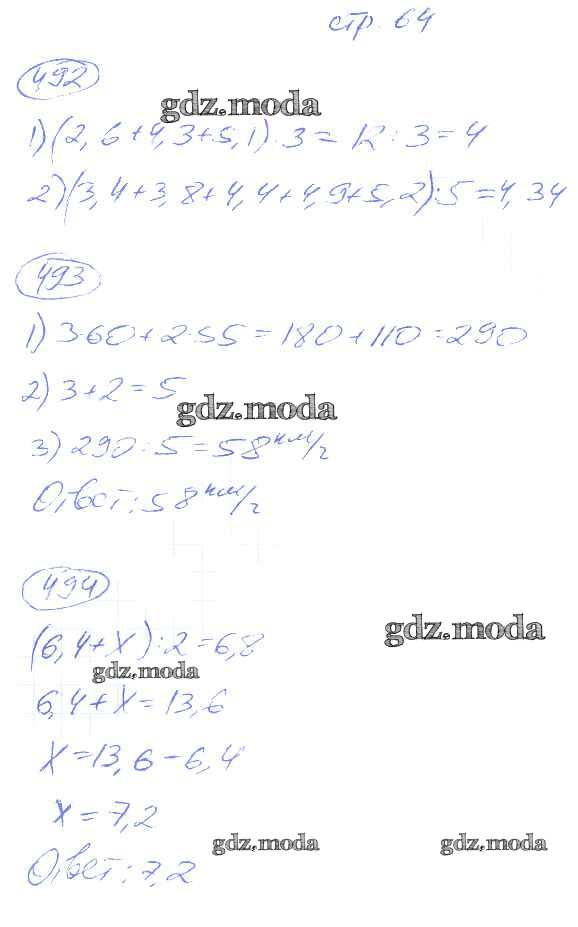 стр. 64
492
gdz.moda
1) (2,6+4,3+5,1):3 = 12:3=4
2) (3,4+3,8+4,4+4,9+5,2):5=4,34
493
1) 3·60+2·55=180+110=290
2) 3+2=5
gdz.moda
3) 290:5=58 км/г
Ответ: 58 км/г
494
gdz.moda
(6,4+x):2=6,8
gdz.moda
6,4+x=13,6
x=13,6-6,4
x=7,2
gdz.moda gdz.moda
Ответ: 7,2